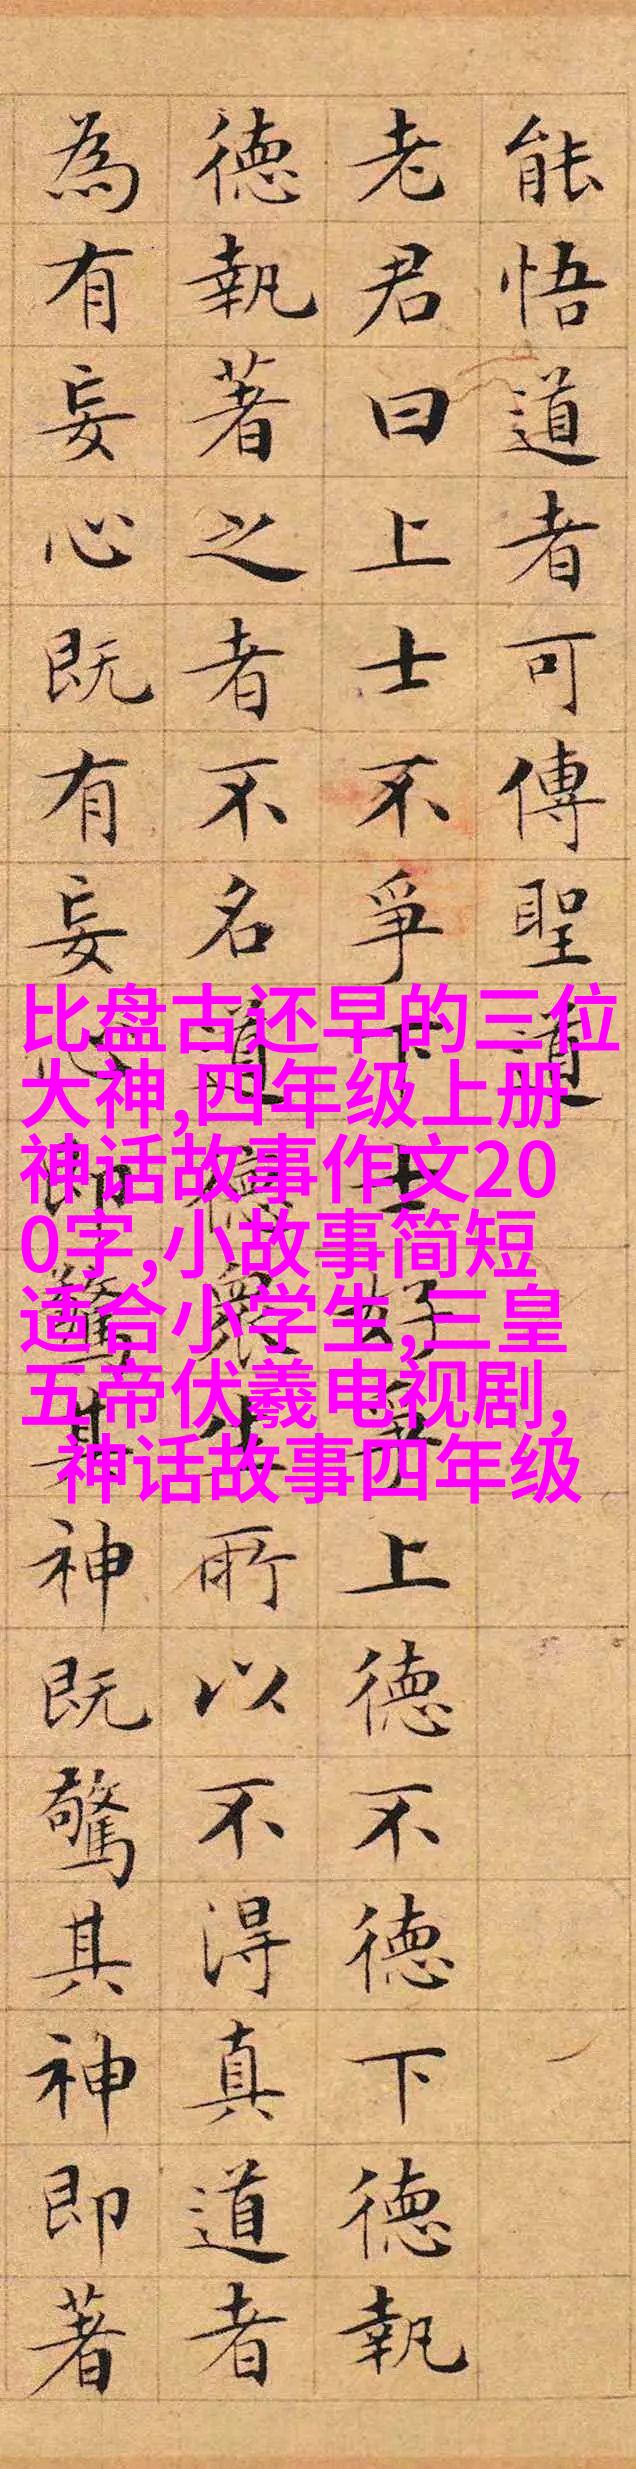 能悟道者可傳聖道
老君曰上士不爭下士好爭上德不德下德執
德執著之者不名道德衆生所以不得真道者
為有妄心既有妄心即驚其神既驚其神即著
比盘古还早的三位
大神,四年级上册
神话故事作文20
0字,小故事简短
适合小学生,三皇
五帝伏羲电视剧,
神话故事四年级